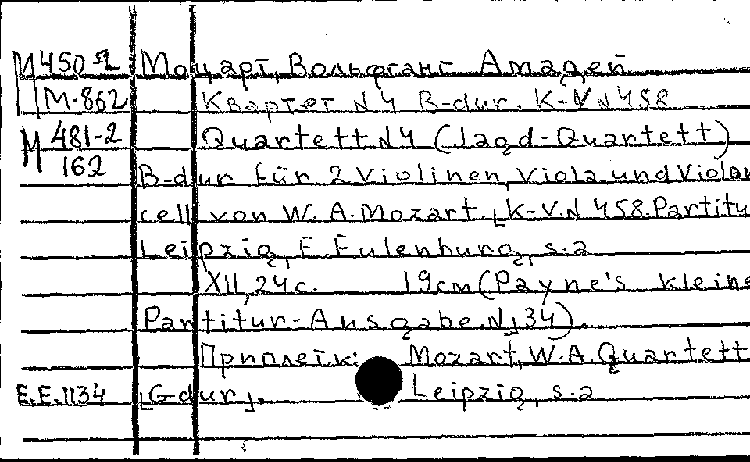 М450-2 Моцарт, Вольфганг Амадей
М-862 Квартет N4 B-dur. K-V N 458
М 481-2 Quartett N4 (Jagd-Quartett)
162 B-dur für 2 Violinen, Viola und Violon
cell von W. A. Mozart. [K-V. N 458. Partitu
Leipzig, E. Eulenburg, s.a
XII, 24 с. 19 см (Payne's kleine
Partitur-Ausgabe. N134).
Приплетк: Mozart, W. A. Quartett
E.E.1134 [G dur]. Leipzig, s.a